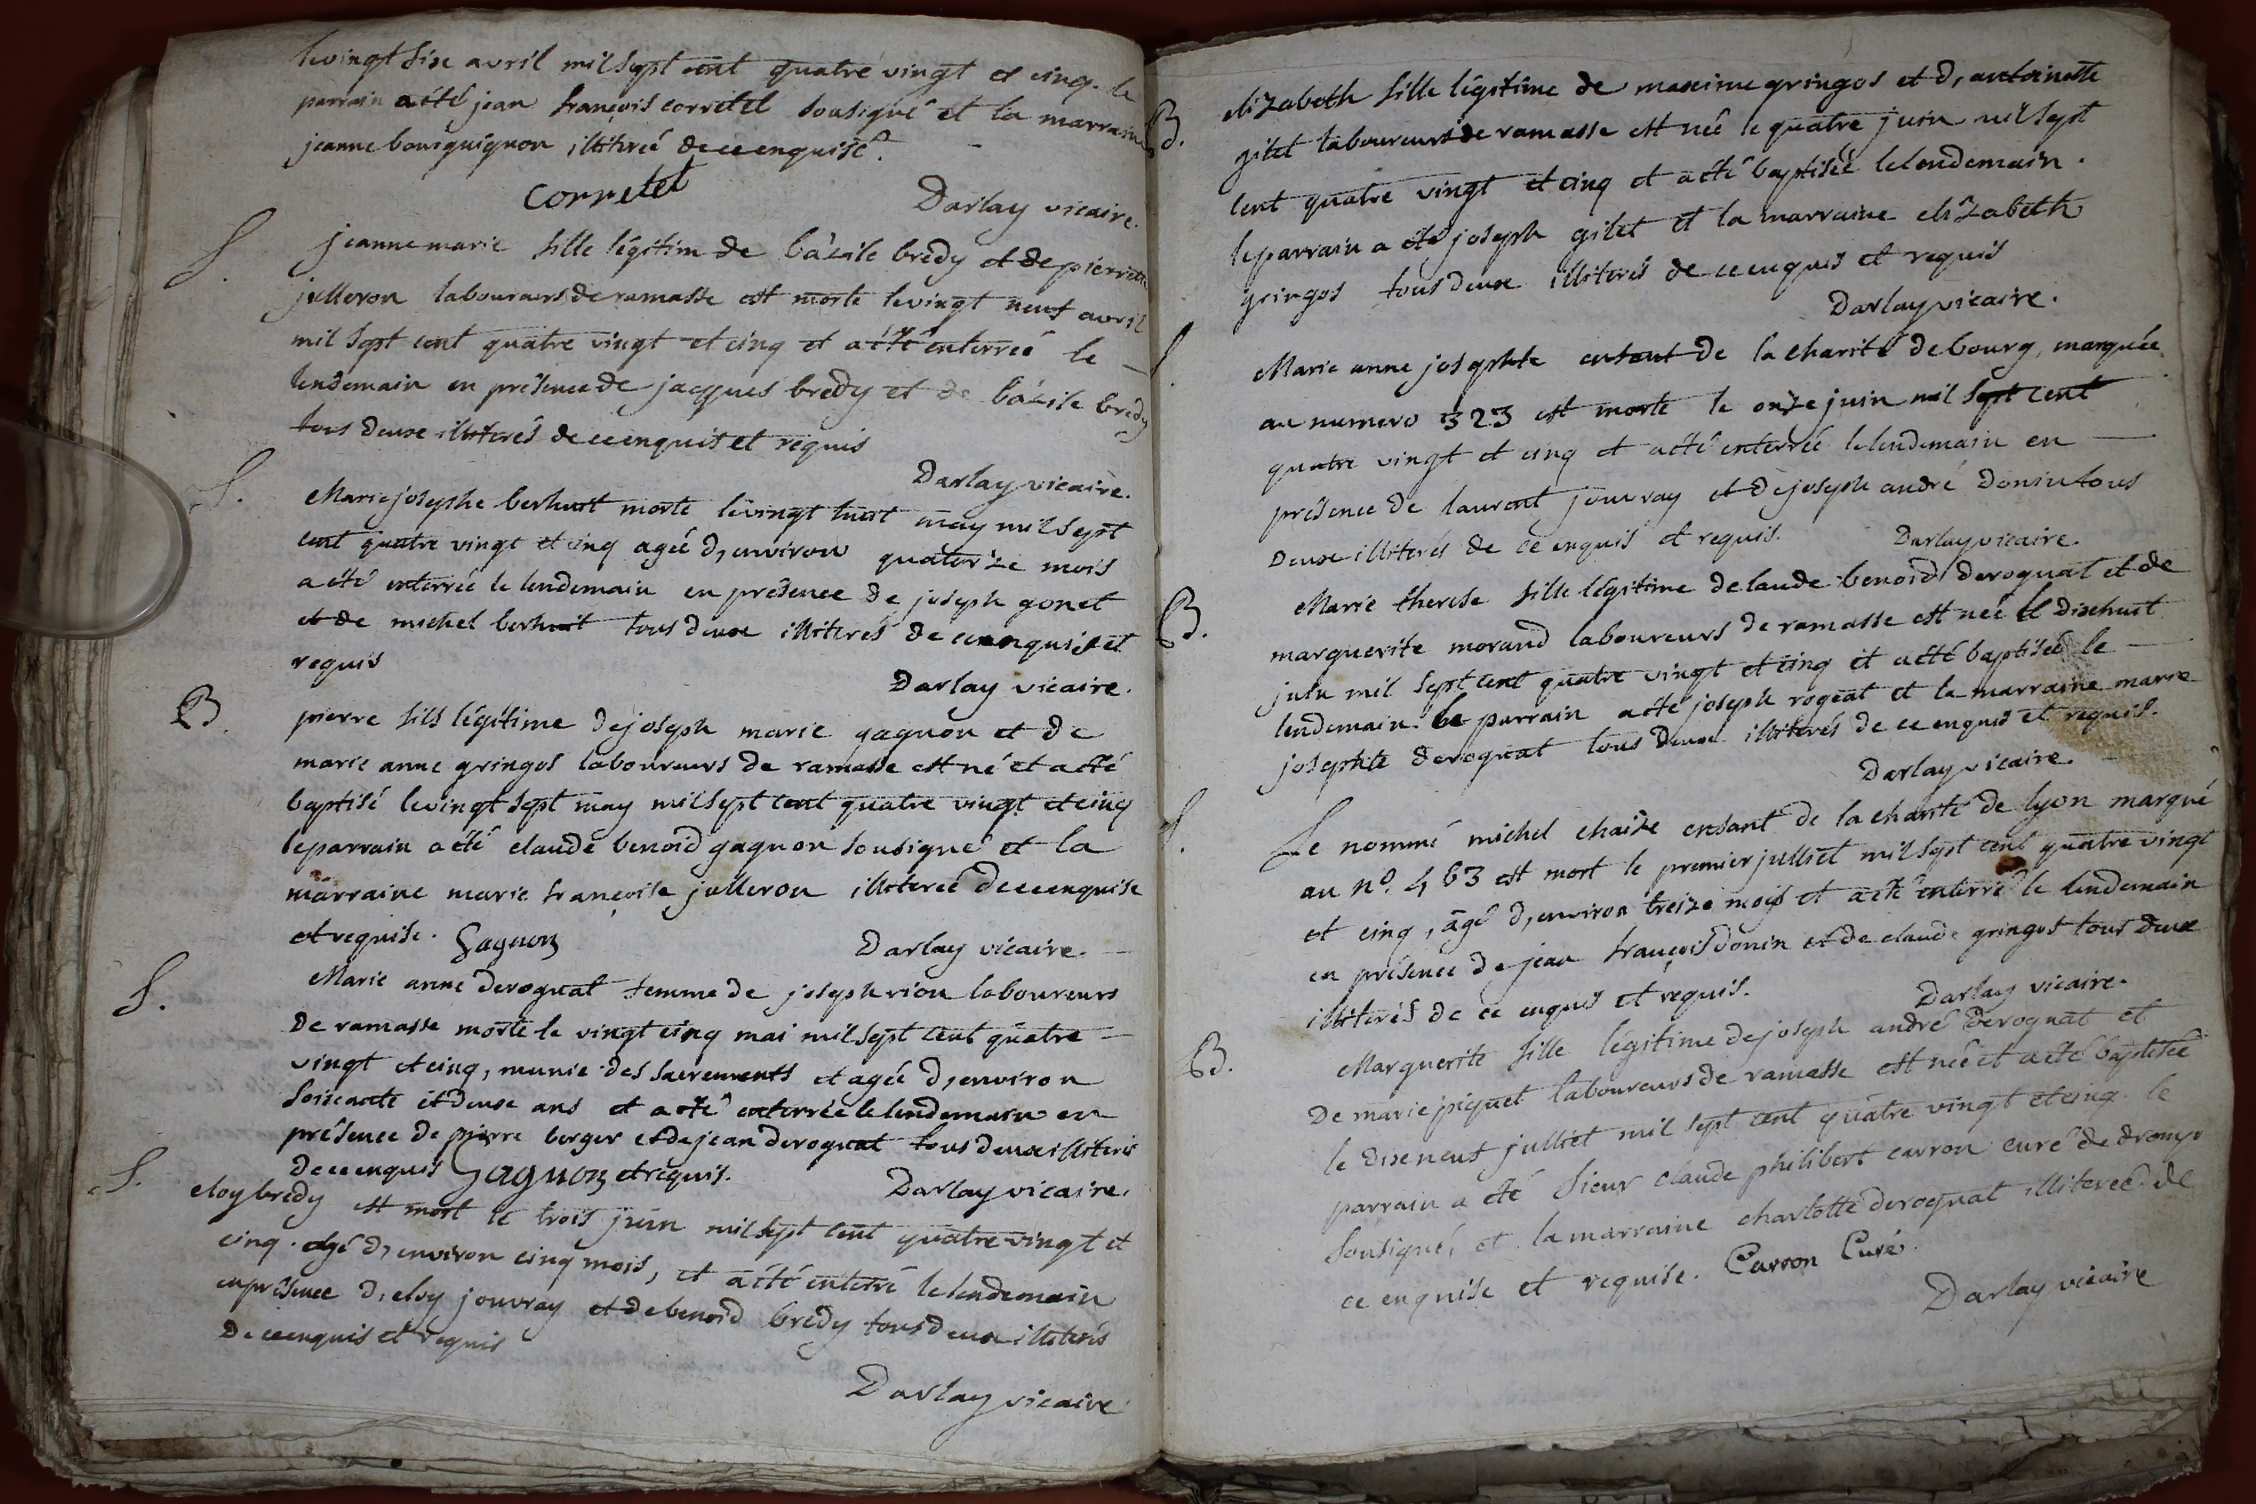 le vingt six avril mil sept cent quatre vingt et cinq. le
parrain a été jean françois corretel sousigné et la marraine
jeanne bourguignon illiterée de ce enquise.
Corretel
Darlay vicaire.
S.
jeanne marie fille légitim de bazile bredy et de pierrette
julleron laboureurs de ramasse est morte le vingt neuf avril
mil sept cent quatre vingt et cinq et a été enterrée le
lendemain en présence de jacques bredy et de bazile bredy
tous deux illiterés de ce enquis et requis
Darlay vicaire.
S.
Marie josephe berhuit morte le vingt huit may mil sept
cent quatre vingt et cinq agée d'environ quatorze mois
a été enterrée le lendemain en présence de joseph gonet
et de michel berhuit tous deux illiterés de ce enquis et
requis
Darlay vicaire.
B.
pierre fils légitime de joseph marie gagnon et de
marie anne gringos laboureurs de ramasse est né et a été
baptisé le vingt sept may mil sept cent quatre vingt et cinq
le parrain a été claude benoid gagnon sousigné et la
marraine marie françoise julleron illiterée de ce enquise
et requise.
Gagnon
Darlay vicaire.
S.
Marie anne derognat femme de joseph riou laboureurs
de ramasse morte le vingt cinq mai mil sept cent quatre
vingt et cinq, munie des sacrements et agée d'environ
soixante et deux ans et a été enterrée le lendemain en
présence de pierre berger et de jean derognat tous deux illiterés
de ce enquis Gagnon et requis.
Darlay vicaire.
S.
eloy bredy est mort le trois juin mil sept cent quatre vingt et
cinq. agé d'environ cinq mois, et a été enterré le lendemain
en présence d'eloy jouvray et de benoid bredy tous deux illiterés
de ce enquis et requis
Darlay vicaire
B.
elizabeth fille légitime de maxime gringos et d'antoinette
gilet laboureurs de ramasse est née le quatre juin mil sept
cent quatre vingt et cinq et a été baptisée le lendemain.
le parrain a été joseph gilet et la marraine elizabeth
gringos tous deux illiterés de ce enquis et requis
Darlay vicaire.
S.
Marie anne josephte enfant de la charité de bourg, marquée
au numero 323 est morte le onze juin mil sept cent
quatre vingt et cinq et a été enterrée le lendemain en
présence de laurent jouvray et de joseph andré donin tous
deux illiterés de ce enquis et requis.
Darlay vicaire.
B.
Marie therese fille légitime de laude benoid derognat et de
marguerite morand laboureurs de ramasse est née le dixhuit
juin mil sept cent quatre vingt et cinq et a été baptisée le
lendemain. le parrain a été joseph rogeat et la marraine marie
josephte derognat tous deux illiterés de ce enquis et requis.
Darlay vicaire.
S.
Le nommé michel chaize enfant de la charité de lyon marqué
au nº. 463 est mort le premier julliet mil sept cent quatre vingt
et cinq, agé d'environ treize mois et a été enterré le lendemain
en présence de jean françois donin et de claude gringos tous deux
illiterés de ce enquis et requis.
Darlay vicaire.
B.
Marguerite fille légitime de joseph andré derognat et
de marie piquet laboureurs de ramasse est née et a été baptisée
le dixneuf julliet mil sept cent quatre vingt et cinq. le
parrain a été sieur claude philibert carron curé de dromp
sousigné, et la marraine charlotte derognat illiterée de
ce enquise et requise. Carron Curé.
Darlay vicaire